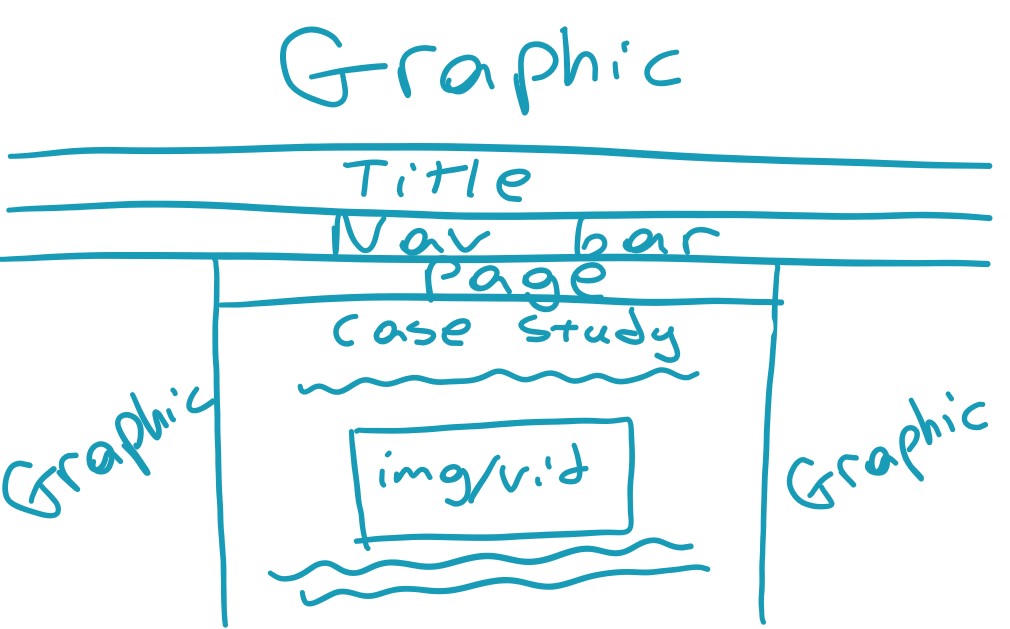 Graphic
Title
Nav bar
Page
case study
Graphic
img/vid
Graphic